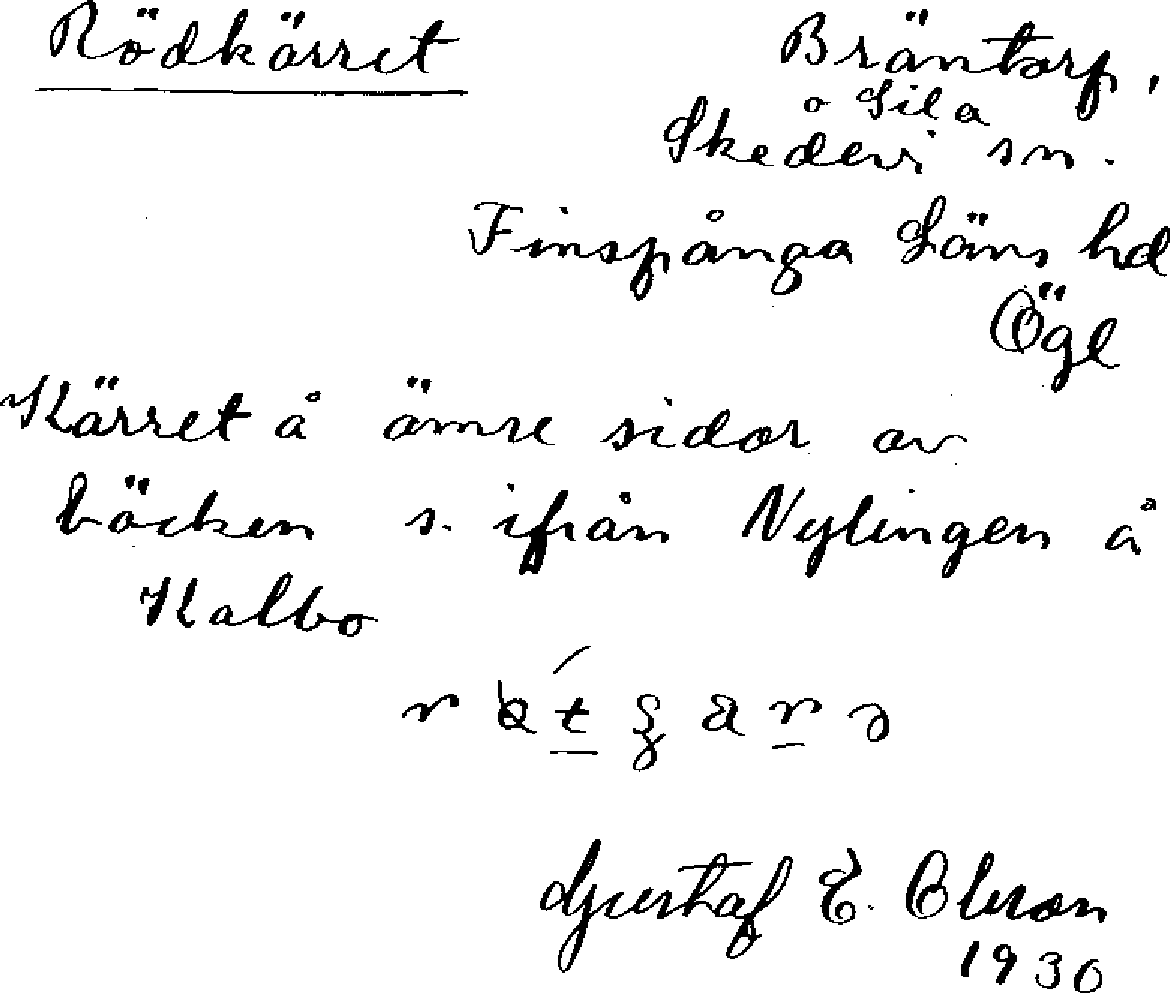 Rödkärret
Bräntorp,
o Sila
Skedevi sn.
Finspånga Läns hd
Ögl
Kärret å ömse sidor av
bäcken s. ifrån Nylingen å
Kalbo
Gustaf E. Olsson
1930